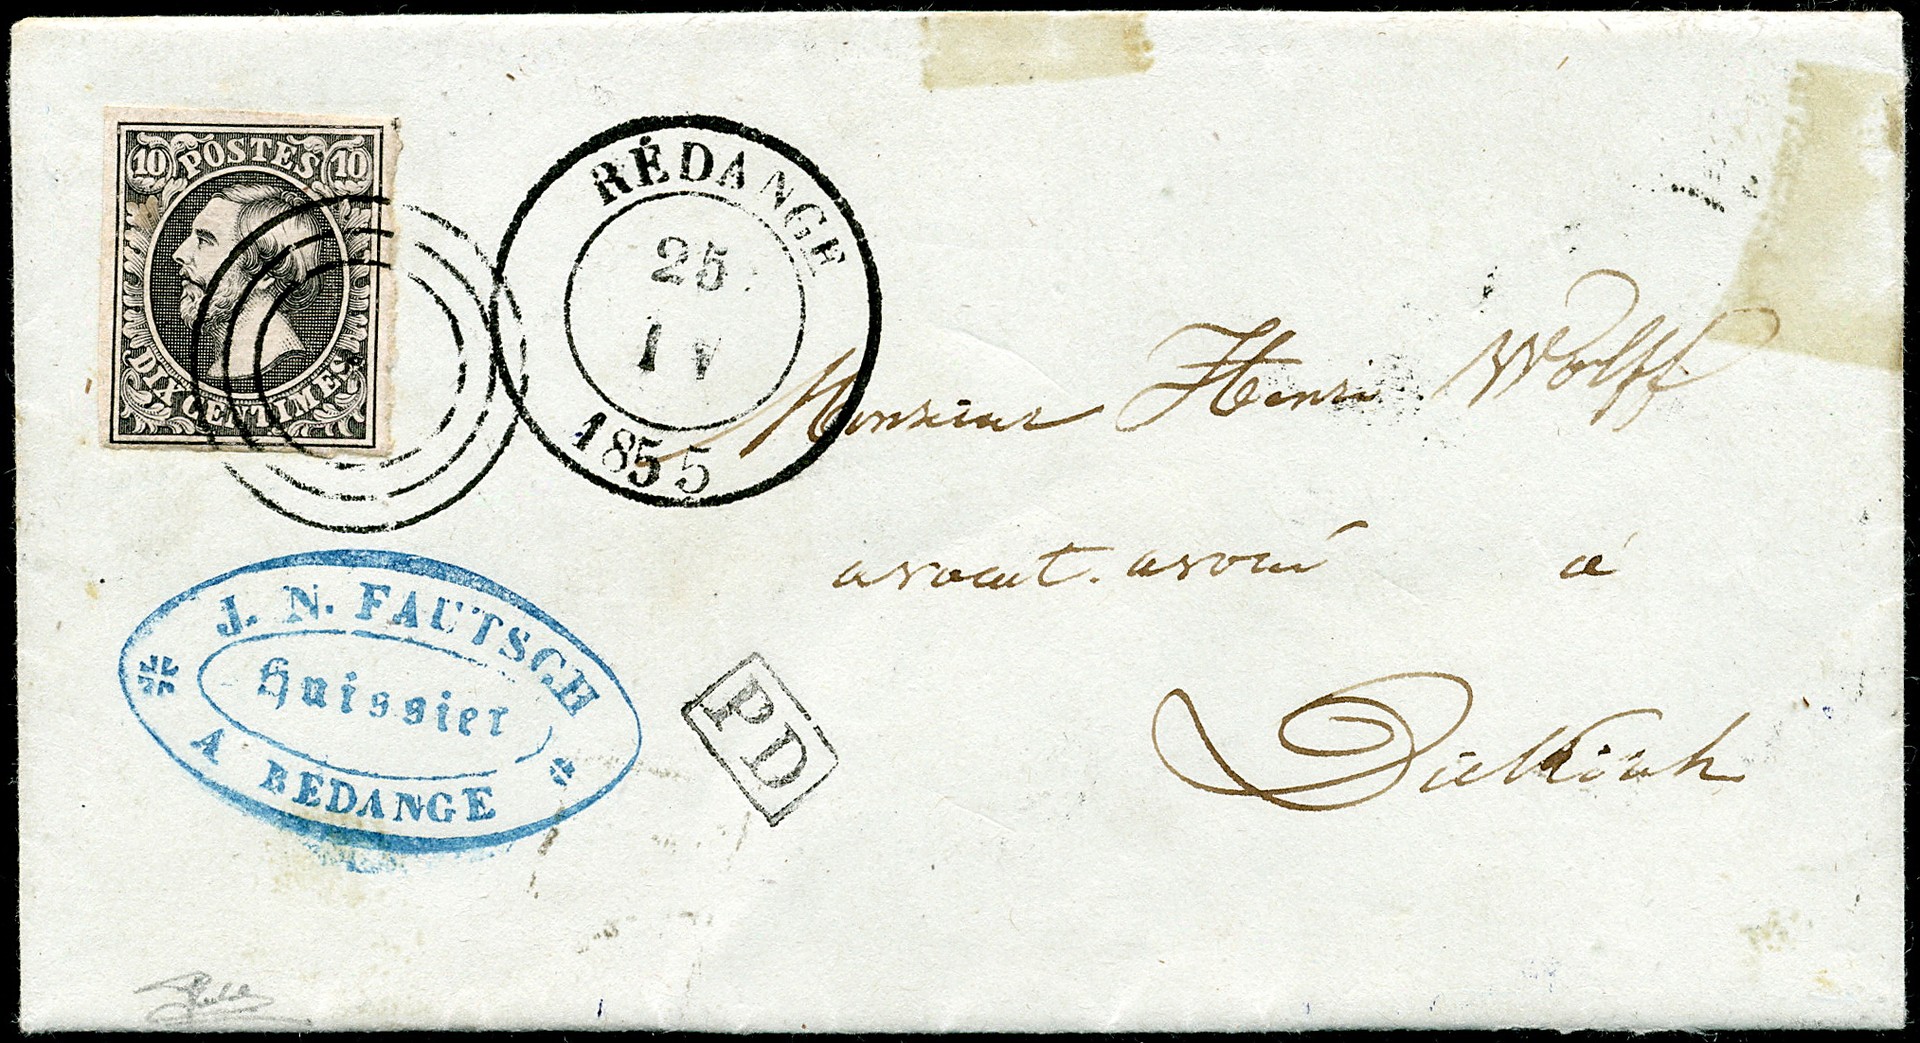 10 POSTES 10
DIX CENTIMES
RÉDANGE
25
IV
1855
Monsieur Henri Wolff
avocat. avoué à
Diekirch
J. N. FAUTSCH
Huissier
A REDANGE
PD